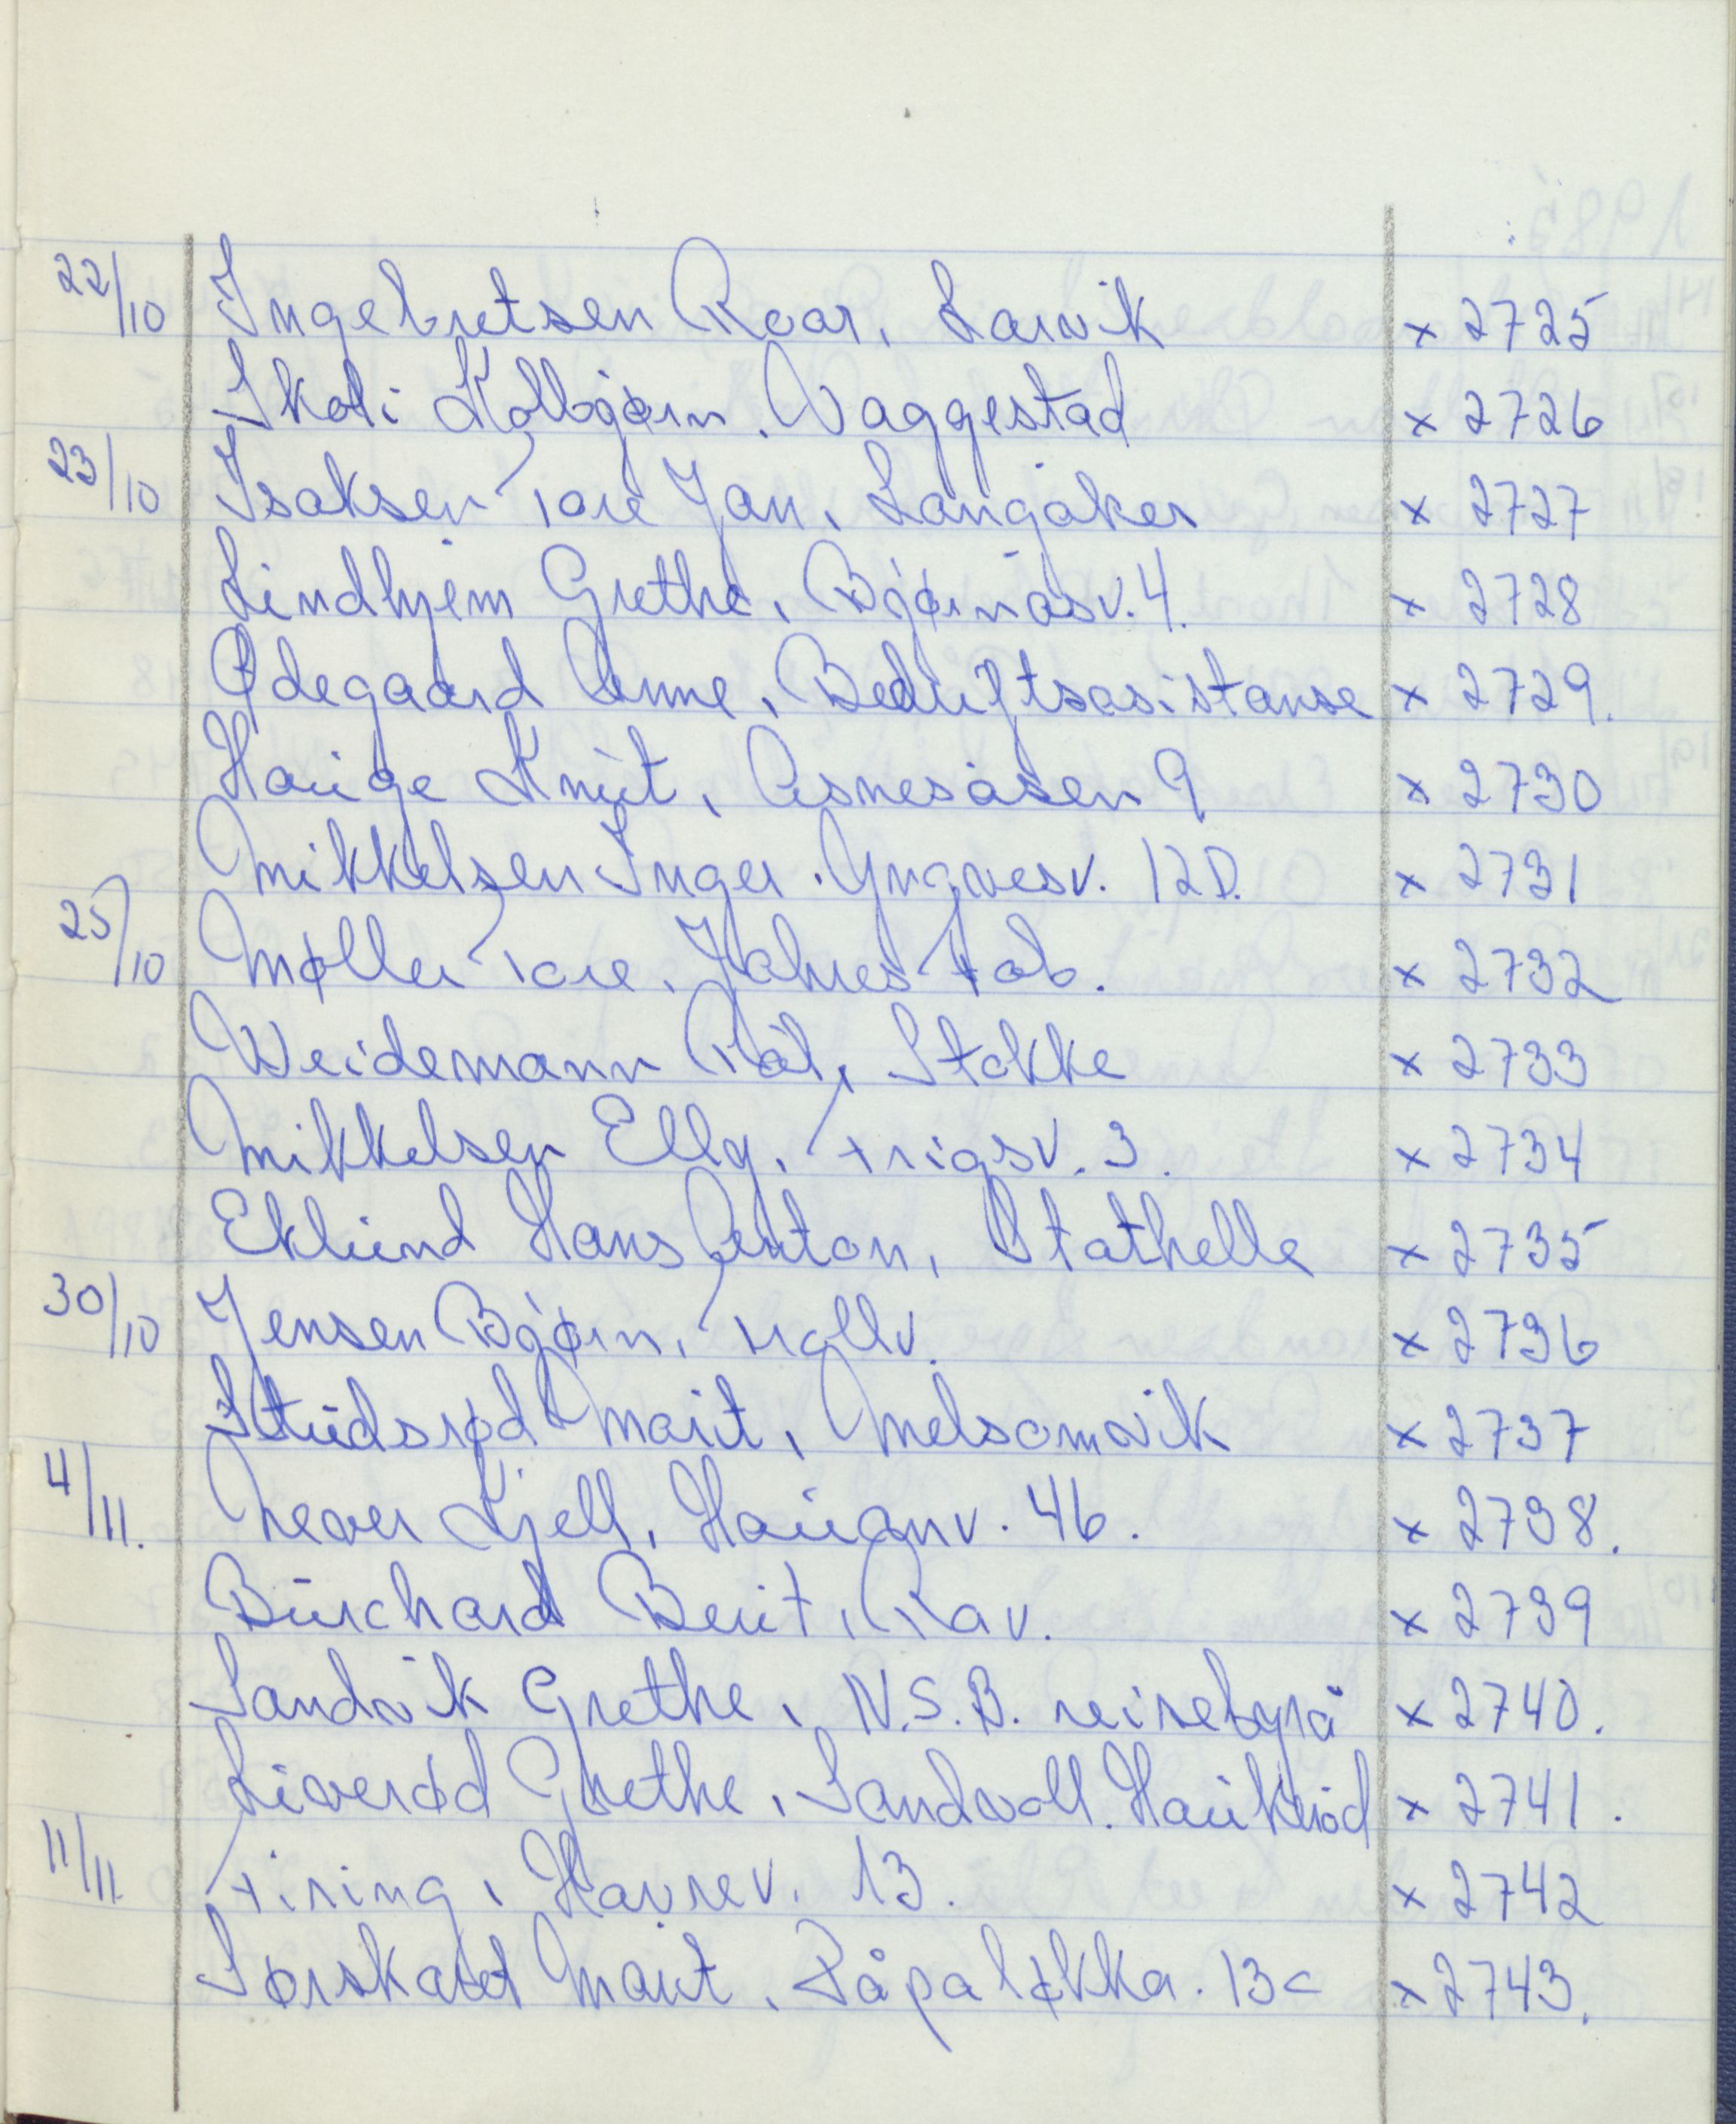 22/10 Ingebretsen Roar, Larvik x 2725
Skoli Kolbjørn. Vaggestad x 2726
23/10 Isaksen Tore Jan, Langåker x 2727
Lindhjem Grethe, Bjørnåsv. 4. x 2728
Ødegaard Anne, Bedriftsasistanse x 2729.
Hauge Knut, Asnesåsen 9 x 2730
Mikkelsen Inger. Yngvesv. 12D. x 2731
25/10 Møller Tore. Jahres Fab. x 2732
Weidemann Pål, Stokke x 2733
Mikkelsen Elly, Frigsv. 3. x 2734
Eklund Hans Anton, Stathelle x 2735
30/10 Jensen Bjørn, Hollv. x 2736
Studsrød Marit, Melsomvik x 2737
4/11. Never Kjell, Hauanv. 46. x 2738.
Burchard Berit, Rav. x 2739
Sandvik Grethe, N.S.B. reisebyrå x 2740.
Liverød Grethe, Sandvoll. Haukerød x 2741.
11/11. Firing, Havrev. 13. x 2742
Sørskard Marit, Påpaløkka. 13c x 2743.